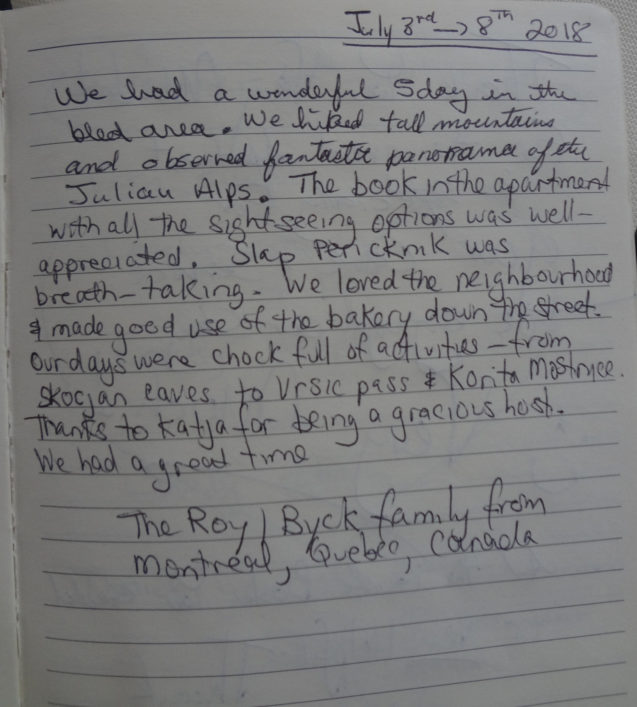 July 3rd → 8th 2018
We had a wonderful 5day in the
bled area. We hiked tall mountains
and observed fantastic panorama of the
Julian Alps. The book in the apartment
with all the sight-seeing options was well-
appreciated. Slap Pericknik was
breath-taking. We loved the neighbourhood
& made good use of the bakery down the street.
Our days were chock full of activities - from
Skocjan caves to Vrsic pass & Korita
Thanks to Katja for being a gracious host.
We had a great time
The Roy / Byck family from
Montréal, Quebec, Canada